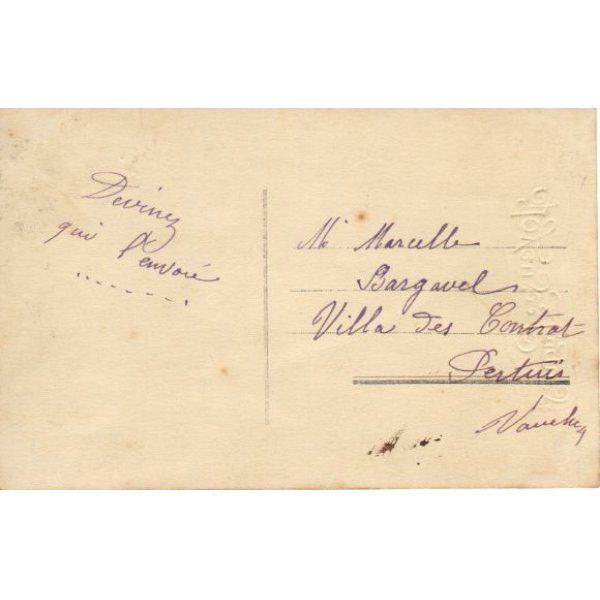 Devinez
qui l'envoie
Mlle Marcelle
Bargavel
Villa des Contrat
Pertuis
Vaucluse